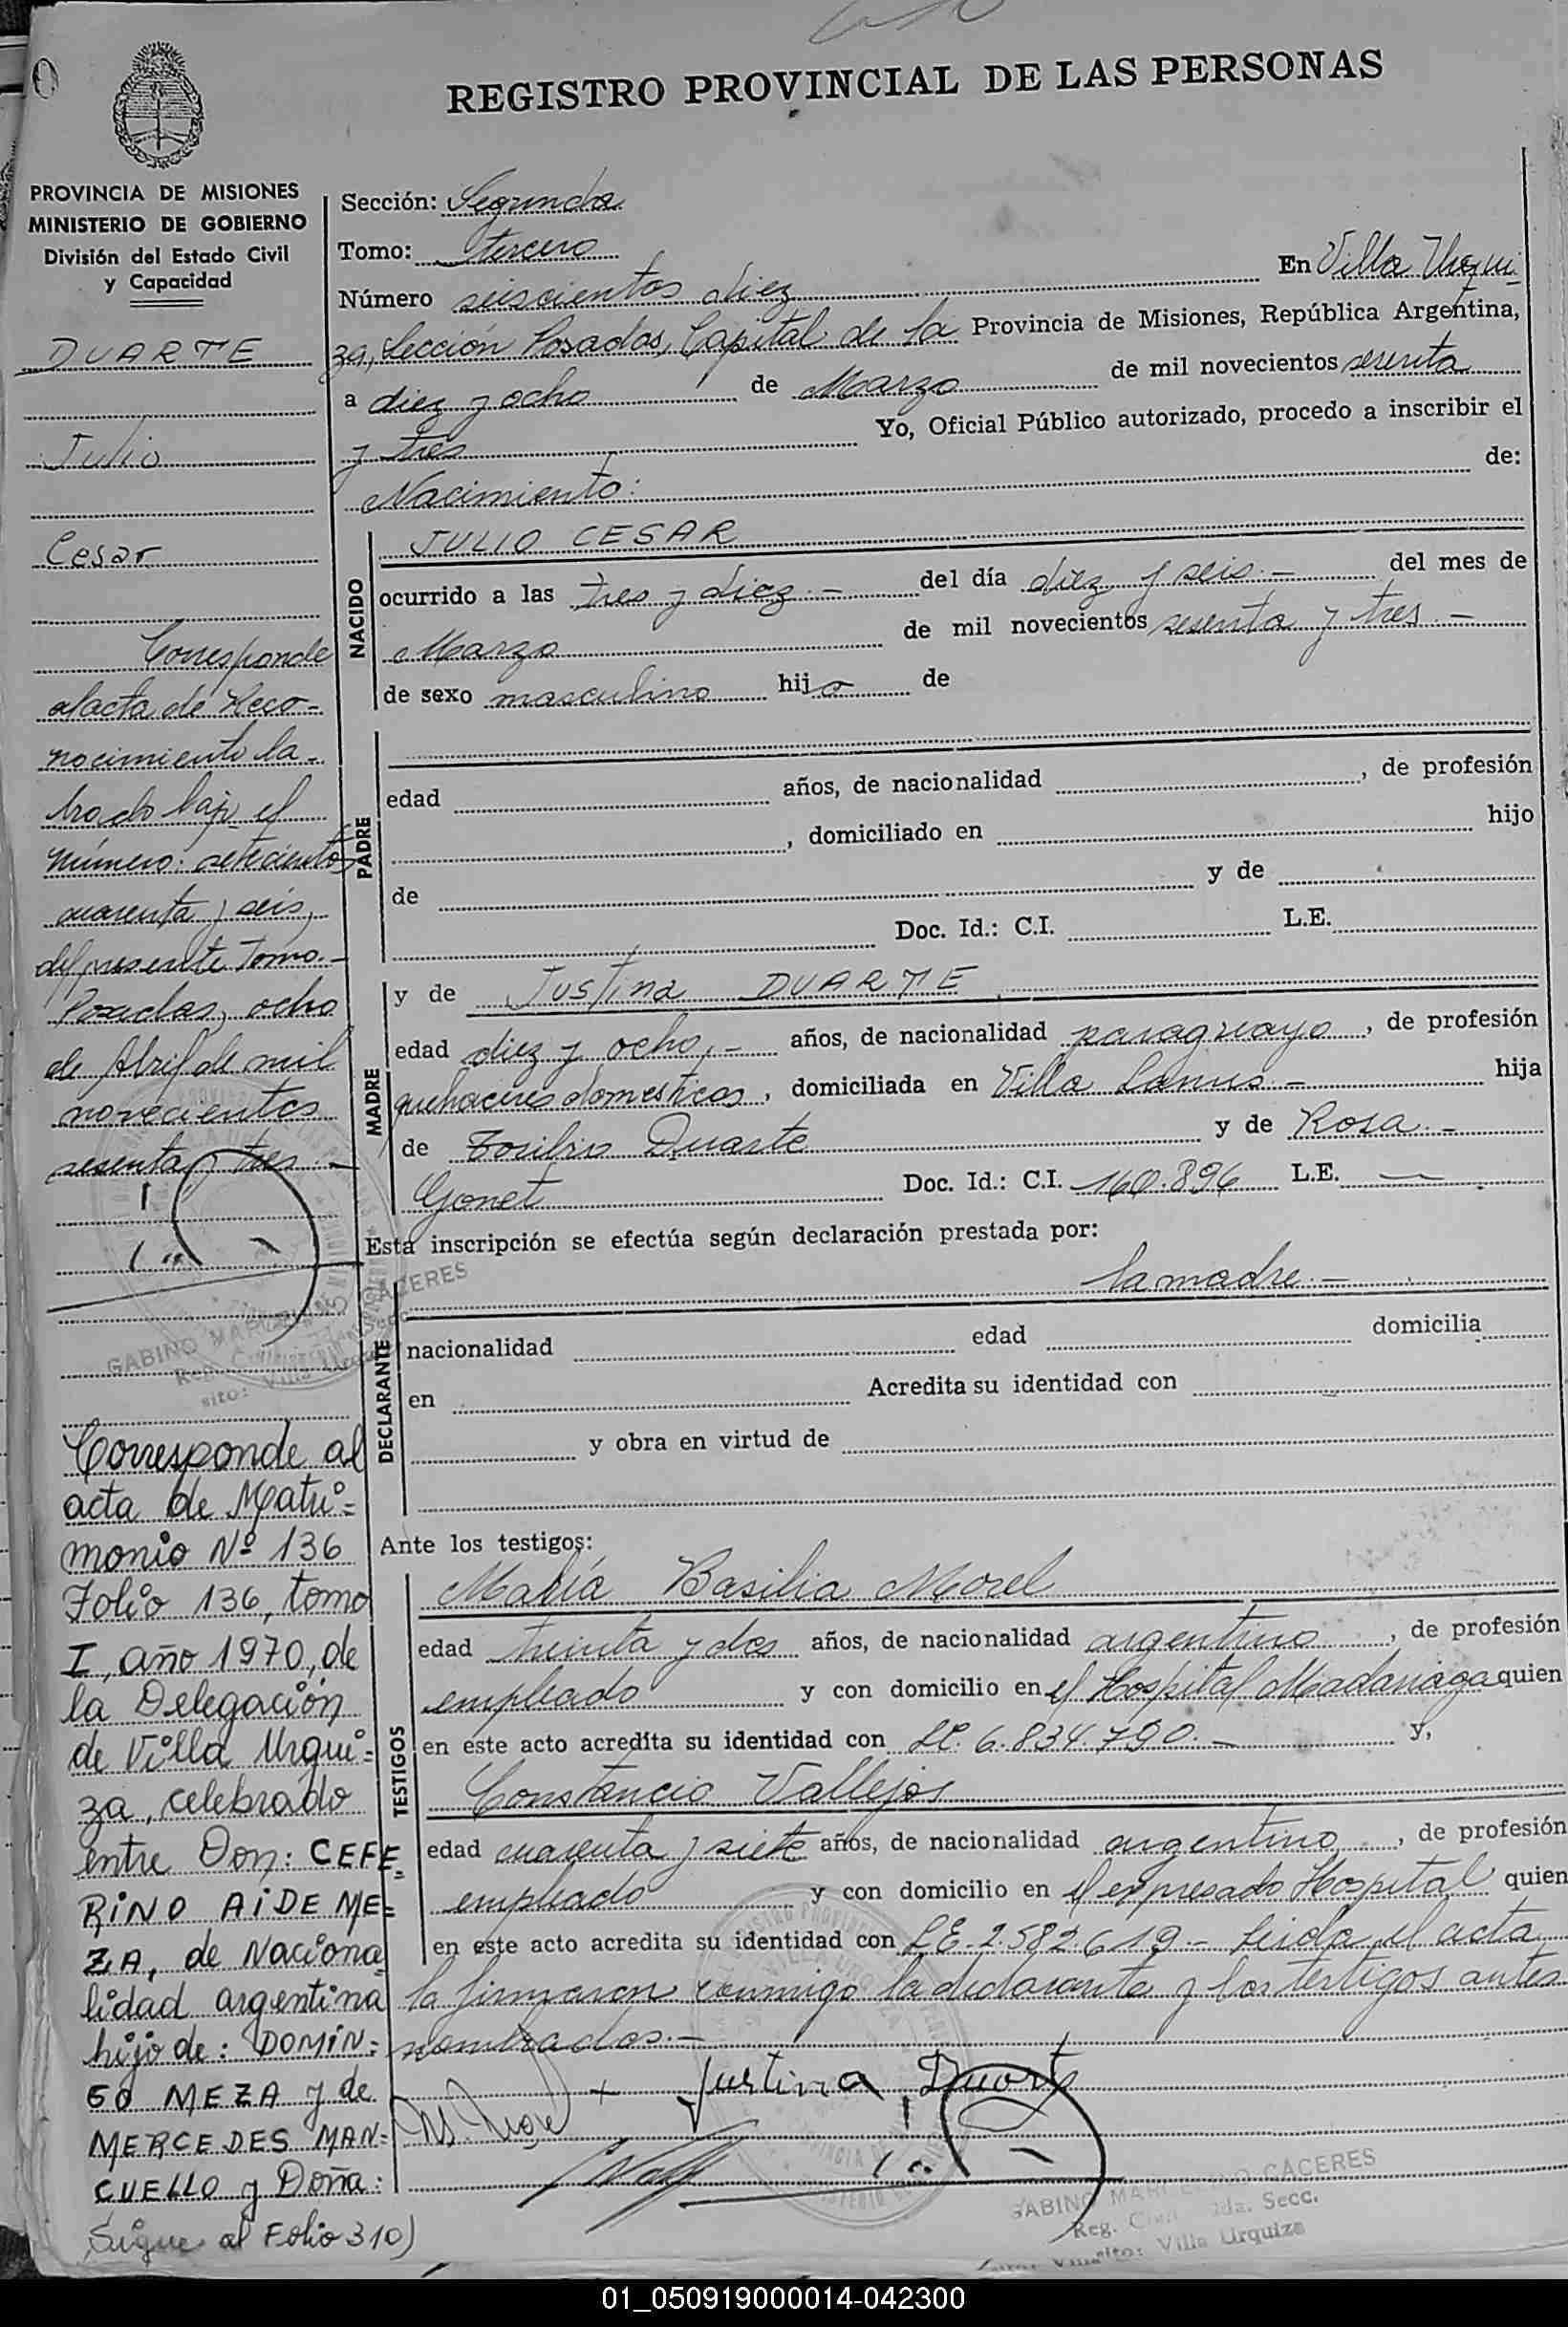 REGISTRO PROVINCIAL DE LAS PERSONAS
PROVINCIA DE MISIONES
MINISTERIO DE GOBIERNO
División del Estado Civil
y Capacidad
DUARTE
Julio
Cesar
Corresponde
al acta de Reco-
nocimiento la-
brado bajo el
número: setecientos
cuarenta y seis,
del presente Tomo.-
Posadas, ocho
de Abril de mil
novecientos
sesenta y tres.-
GABINO MARCELINO CACERES
Corresponde al
acta de Matri=
monio Nº 136
Folio 136, tomo
I, año 1970, de
la Delegación
de Villa Urqui=
za, celebrado
entre Don: CEFE=
RINO AIDE ME=
ZA, de Naciona=
lidad argentina
hijo de: DOMIN=
GO MEZA y de
MERCEDES MAN=
CUELLO y Doña:
Sigue al Folio 310)
Sección: Segunda
Tomo: tercero
Número seiscientos diez En Villa Urqui-
za, Sección Posadas, Capital de la Provincia de Misiones, República Argentina,
a diez y ocho de Marzo de mil novecientos sesenta
y tres Yo, Oficial Público autorizado, procedo a inscribir el
Nacimiento: de:
NACIDO
JULIO CESAR
ocurrido a las tres y diez.- del día diez y seis.- del mes de
Marzo de mil novecientos sesenta y tres.-
de sexo masculino hijo de
PADRE
edad años, de nacionalidad , de profesión
, domiciliado en hijo
de y de
Doc. Id.: C.I. L.E.
MADRE
y de Justina DUARTE
edad diez y ocho,- años, de nacionalidad paraguayo, de profesión
quehaceres domesticos, domiciliada en Villa Lanus- hija
de Toribio Duarte y de Rosa.-
Gonet Doc. Id.: C.I. 160.896 L.E. —
Esta inscripción se efectúa según declaración prestada por:
la madre.-
DECLARANTE
nacionalidad edad domicilia
en Acredita su identidad con
y obra en virtud de
Ante los testigos:
TESTIGOS
María Basilia Morel
edad treinta y dos años, de nacionalidad argentino, de profesión
empleado y con domicilio en el Hospital Madariaga quien
en este acto acredita su identidad con LC. 6.834.790.- y,
Constancio Vallejos
edad cuarenta y siete años, de nacionalidad argentino, de profesión
empleado y con domicilio en el expresado Hospital quien
en este acto acredita su identidad con LE. 2.582.619- Leida el acta
la firmaron conmigo la declarante y los testigos antes
nombrados.-
Justina Duarte
GABINO MARCELINO CACERES
Villa Urquiza
01_050919000014-042300